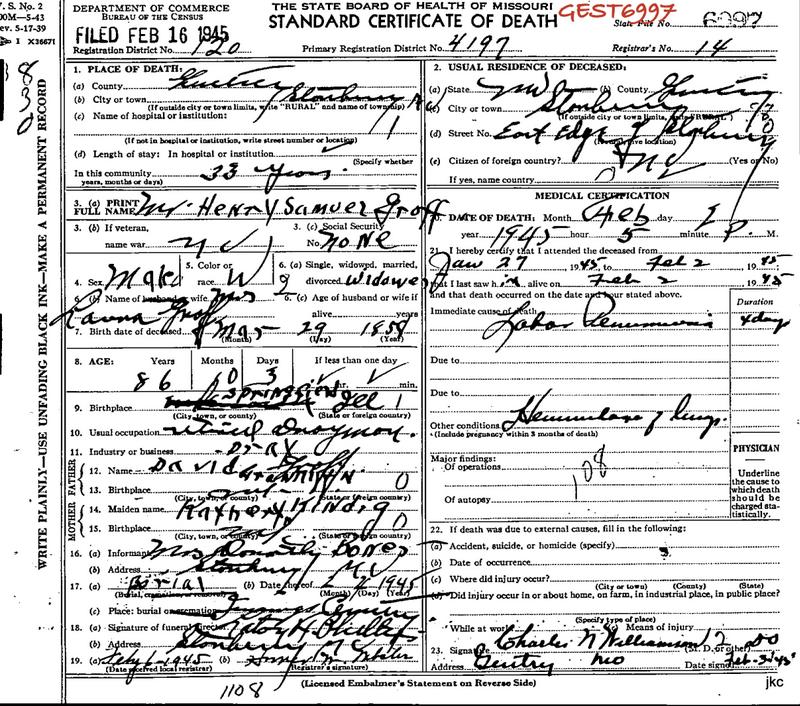 V. S. No. 2
00M—5-43
ev. 5-17-39
I X36671
DEPARTMENT OF COMMERCE
BUREAU OF THE CENSUS
THE STATE BOARD OF HEALTH OF MISSOURI
STANDARD CERTIFICATE OF DEATH
GEST6997
State File No. 6097
FILED FEB 16 1945
Registration District No. 120
Primary Registration District No. 4197
Registrar's No. 14
WRITE PLAINLY—USE UNFADING BLACK INK—MAKE A PERMANENT RECORD
1. PLACE OF DEATH:
(a) County Gentry
(b) City or town Stanberry
(If outside city or town limits, write "RURAL" and name of township)
(c) Name of hospital or institution:
(If not in hospital or institution, write street number or location)
(d) Length of stay: In hospital or institution
(Specify whether
In this community 33 years.
years, months or days)
2. USUAL RESIDENCE OF DECEASED:
(a) State Mo (b) County Gentry
(c) City or town Stanberry
(If outside city or town limits, write "RURAL")
(d) Street No. East Edge of Stanberry
(If rural, give location)
(e) Citizen of foreign country? No (Yes or No)
If yes, name country
3. (a) PRINT FULL NAME Mr. Henry Samuel Groff
3. (b) If veteran, name war No
3. (c) Social Security No. None
4. Sex Male
5. Color or race W
6. (a) Single, widowed, married, divorced Widowed
6. (b) Name of husband or wife Mrs Laura Groff
6. (c) Age of husband or wife if alive years
7. Birth date of deceased Mar 29 1858
(Month) (Day) (Year)
8. AGE: Years Months Days If less than one day
86 10 3 hr. min.
9. Birthplace Springfield Ill
(City, town, or county) (State or foreign country)
10. Usual occupation retired Drayman.
11. Industry or business Dray
FATHER
12. Name David Groff
13. Birthplace
(City, town, or county) (State or foreign country)
MOTHER
14. Maiden name Kathery Kindig
15. Birthplace
(City, town, or county) (State or foreign country)
16. (a) Informant Mrs
(b) Address Stanberry Mo
17. (a) Burial (b) Date thereof 1945
(Burial, cremation or removal) (Month) (Day) (Year)
(c) Place: burial or cremation Cemetery
18. (a) Signature of funeral director Phillips
(b) Address Stanberry
19. (a) 1945 (b)
(Date received local registrar) (Registrar's signature)
MEDICAL CERTIFICATION
20. DATE OF DEATH: Month Feb day 2
year 1945 hour 5 minute P. M.
21. I hereby certify that I attended the deceased from
Jan 27 1945 to Feb 2 1945
that I last saw him alive on Feb 2 1945
and that death occurred on the date and hour stated above.
Duration
Immediate cause of death Lobar Pneumonia 4 days
Due to
Due to
Other conditions Hemorrhage of lungs.
(Include pregnancy within 3 months of death)
Major findings:
Of operations
108
Of autopsy
PHYSICIAN
Underline the cause to which death should be charged statistically.
22. If death was due to external causes, fill in the following:
(a) Accident, suicide, or homicide (specify)
(b) Date of occurrence
(c) Where did injury occur?
(City or town) (County) (State)
(d) Did injury occur in or about home, on farm, in industrial place, in public place?
(Specify type of place)
While at work (e) Means of injury
23. Signature Charles N Williamson
(M. D. or other)
Address Gentry Mo Date signed Feb-3-45
1108
(Licensed Embalmer's Statement on Reverse Side)
jkc